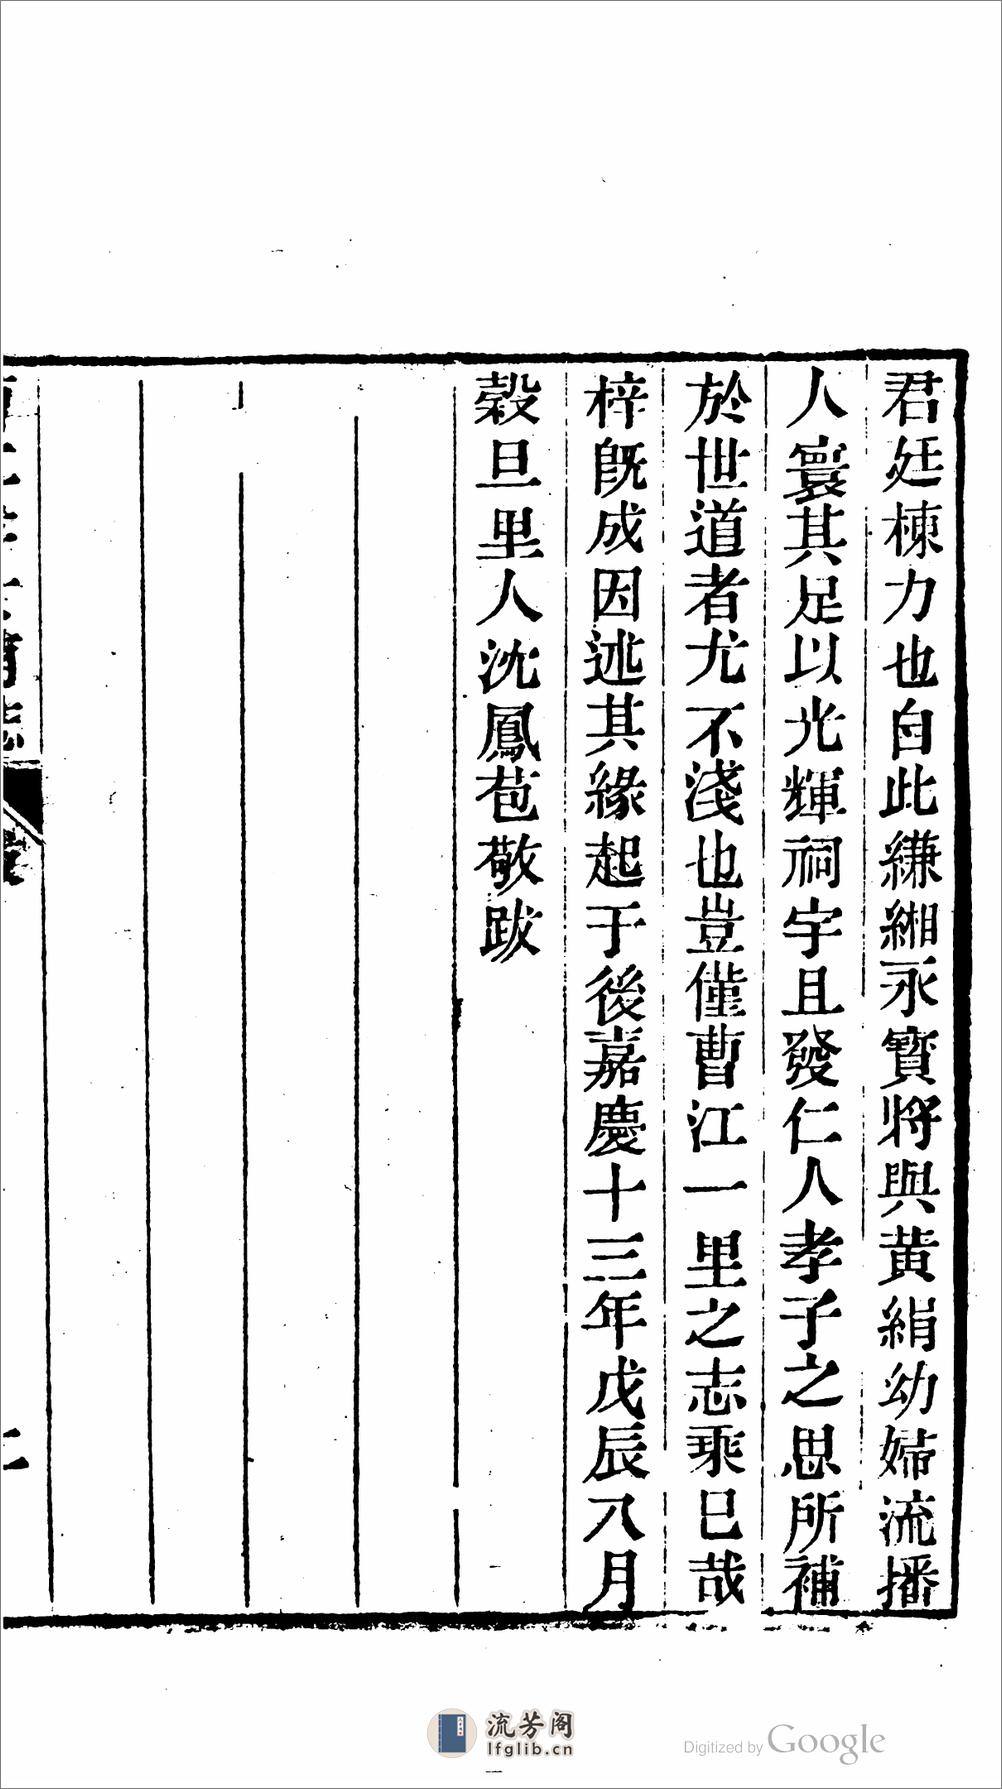 君廷棟力也自此縑緗永寶將與黃絹幼婦流播
人寰其足以光輝祠宇且發仁人孝子之思所補
於世道者尤不淺也豈僅曹江一里之志乘已哉
梓旣成因述其緣起于後嘉慶十三年戊辰八月
穀旦里人沈鳳苞敬跋
志
流芳阁
lfglib.cn
Digitized by Google